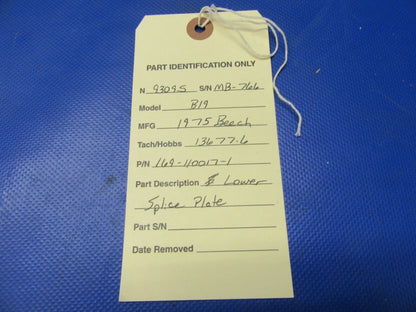 PART IDENTIFICATION ONLY
N 9309S S/N MB-766
Model B19
MFG 1975 Beech
Tach/Hobbs 13677.6
P/N 169-110017-1
Part Description Lower
Splice Plate
Part S/N
Date Removed